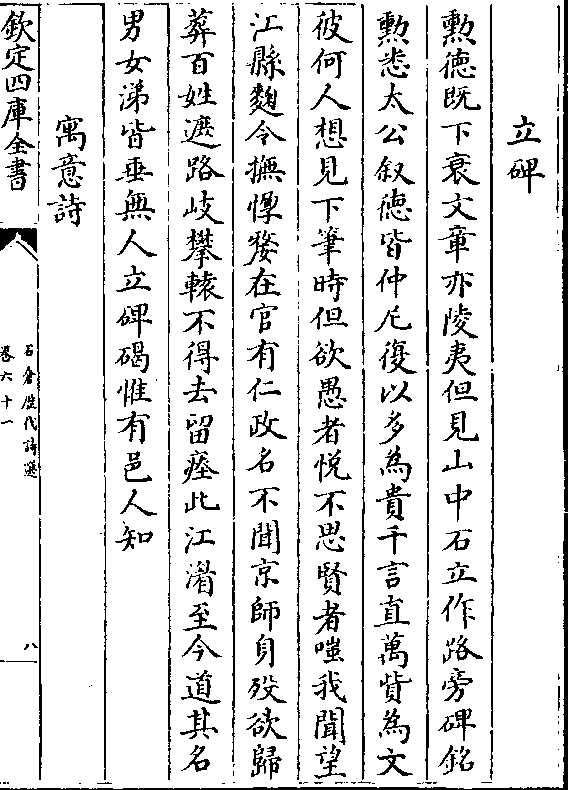 立碑
勲徳既下衰文章亦陵夷但見山中石立作路旁碑銘
勲悉太公叙徳皆仲尼復以多為貴千言直萬貲為文
彼何人想見下筆時但欲愚者悅不思賢者嗤我聞望
江縣麴令撫惸嫠在官有仁政名不聞京師身歿欲歸
葬百姓遮路岐攀轅不得去留瘞此江湄至今道其名
男女涕皆垂無人立碑碣惟有邑人知
寓意詩
欽定四庫全書
石倉歷代詩選
卷六十一
八